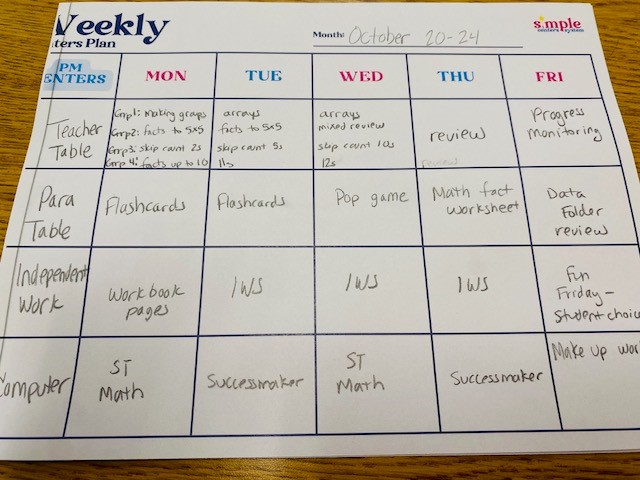 Weekly
Centers Plan
Month: October 20-24
simple
centers system
PM
CENTERS
MON
TUE
WED
THU
FRI
Teacher
Table
Grp1: Making groups
Grp2: facts to 5x5
Grp3: skip count 2s
Grp 4: facts up to 10
arrays
facts to 5x5
skip count 5s
11s
arrays
mixed review
skip count 10s
12s
review
review
Progress
monitoring
Para
Table
Flashcards
Flashcards
Pop game
Math fact
worksheet
Data
Folder
review
Independent
Work
Workbook
pages
IWS
IWS
IWS
Fun
Friday-
Student choice
Computer
ST
Math
Successmaker
ST
Math
Successmaker
Make up work